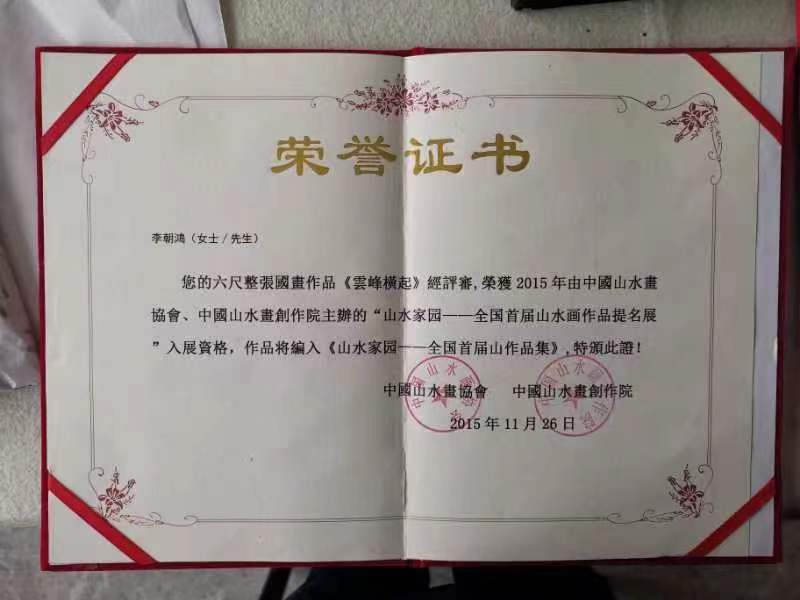 荣誉证书
李朝鴻（女士/先生）
您的六尺整張國畫作品《雲峰橫起》經評審,榮獲 2015 年由中國山水畫
協會、中國山水畫創作院主辦的“山水家园——全国首届山水画作品提名展
”入展資格，作品将編入《山水家园——全国首届山作品集》,特頒此證！
中國山水畫協會 中國山水畫創作院
2015 年 11 月 26 日